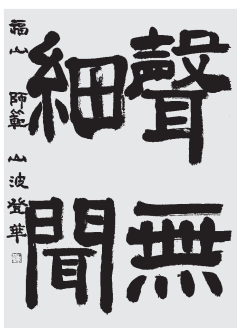 聲無
細聞
福山 師範 山波登華